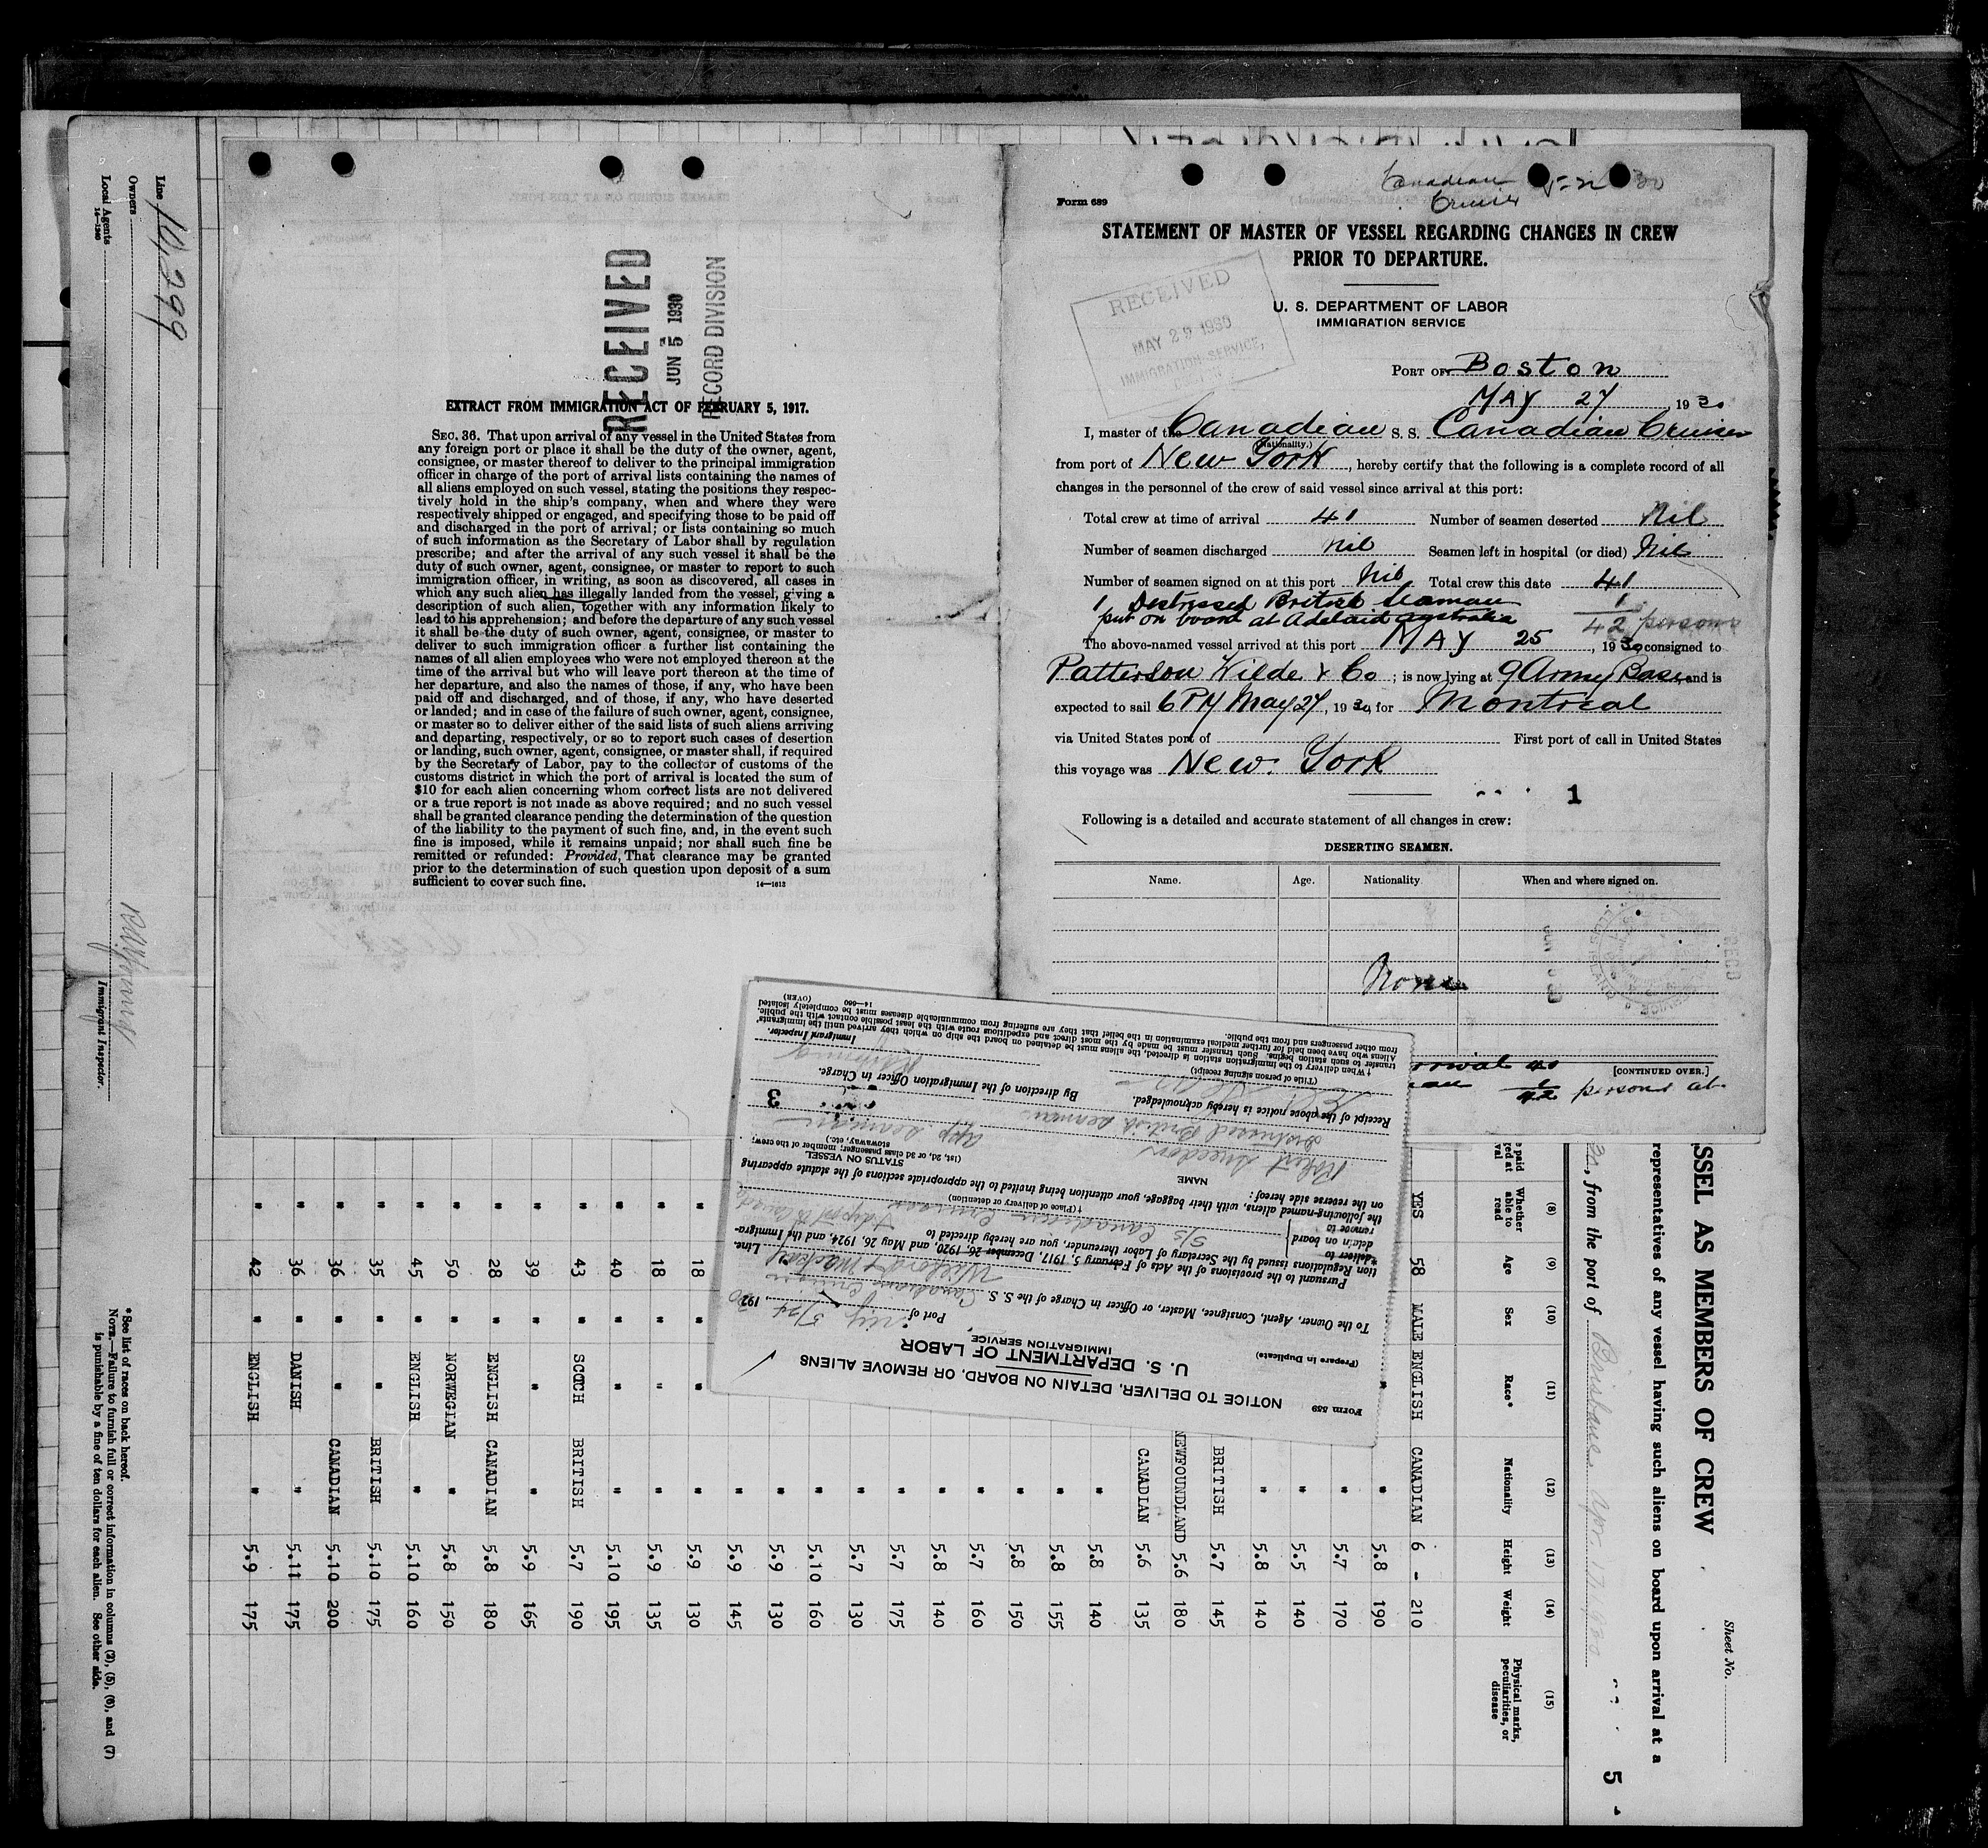 Canadian
Cruiser
Form 689
STATEMENT OF MASTER OF VESSEL REGARDING CHANGES IN CREW
PRIOR TO DEPARTURE.
U. S. DEPARTMENT OF LABOR
IMMIGRATION SERVICE
RECEIVED
MAY 29 1930
IMMIGRATION SERVICE,
PORT OF Boston
MAY 27, 1930
I, master of the Canadian S. S. Canadian Cruiser
(Nationality.)
from port of New York, hereby certify that the following is a complete record of all
changes in the personnel of the crew of said vessel since arrival at this port:
Total crew at time of arrival 41 Number of seamen deserted Nil
Number of seamen discharged nil Seamen left in hospital (or died) Nil
Number of seamen signed on at this port Nil Total crew this date 41
1 Destressed British Seaman 1
put on board at Adelaid Australia 42 persons
The above-named vessel arrived at this port MAY 25, 1930 consigned to
Patterson Wilde & Co; is now lying at 9 Army Base, and is
expected to sail 6 PM May 27, 1930, for Montreal
via United States port of First port of call in United States
this voyage was New York
1
Following is a detailed and accurate statement of all changes in crew:
DESERTING SEAMEN.
Name. Age. Nationality When and where signed on.
None
[CONTINUED OVER.]
42 persons at
RECEIVED
JUN 5 1930
RECORD DIVISION
EXTRACT FROM IMMIGRATION ACT OF FEBRUARY 5, 1917.
SEC. 36. That upon arrival of any vessel in the United States from
any foreign port or place it shall be the duty of the owner, agent,
consignee, or master thereof to deliver to the principal immigration
officer in charge of the port of arrival lists containing the names of
all aliens employed on such vessel, stating the positions they respec-
tively hold in the ship's company, when and where they were
respectively shipped or engaged, and specifying those to be paid off
and discharged in the port of arrival; or lists containing so much
of such information as the Secretary of Labor shall by regulation
prescribe; and after the arrival of any such vessel it shall be the
duty of such owner, agent, consignee, or master to report to such
immigration officer, in writing, as soon as discovered, all cases in
which any such alien has illegally landed from the vessel, giving a
description of such alien, together with any information likely to
lead to his apprehension; and before the departure of any such vessel
it shall be the duty of such owner, agent, consignee, or master to
deliver to such immigration officer a further list containing the
names of all alien employees who were not employed thereon at the
time of the arrival but who will leave port thereon at the time of
her departure, and also the names of those, if any, who have been
paid off and discharged, and of those, if any, who have deserted
or landed; and in case of the failure of such owner, agent, consignee,
or master so to deliver either of the said lists of such aliens arriving
and departing, respectively, or so to report such cases of desertion
or landing, such owner, agent, consignee, or master shall, if required
by the Secretary of Labor, pay to the collector of customs of the
customs district in which the port of arrival is located the sum of
$10 for each alien concerning whom correct lists are not delivered
or a true report is not made as above required; and no such vessel
shall be granted clearance pending the determination of the question
of the liability to the payment of such fine, and, in the event such
fine is imposed, while it remains unpaid; nor shall such fine be
remitted or refunded: Provided, That clearance may be granted
prior to the determination of such question upon deposit of a sum
sufficient to cover such fine. 14—1013
Form 559
NOTICE TO DELIVER, DETAIN ON BOARD, OR REMOVE ALIENS
(Prepare in Duplicate)
U. S. DEPARTMENT OF LABOR
IMMIGRATION SERVICE
Port of 5/24, 1930
To the Owner, Agent, Consignee, Master, or Officer in Charge of the S. S. Canadian Cruiser
Line.
Pursuant to the provisions of the Acts of February 5, 1917, December 26, 1920, and May 26, 1924, and the Immigra-
tion Regulations issued by the Secretary of Labor thereunder, you are hereby directed to
deliver to
detain on board S/S Canadian Cruiser
remove to
(†Place of delivery or detention)
the following-named aliens, with their baggage, your attention being invited to the appropriate sections of the statute appearing
on the reverse side hereof:
NAME
STATUS ON VESSEL
(1st, 2d, or 3d class passenger; member of the crew;
stowaway, etc.)
Robert
Distressed British Seaman
App. Seaman
Receipt of the above notice is hereby acknowledged.
3
By direction of the Immigration Officer in Charge.
(Title of person signing receipt)
Immigrant Inspector.
† When delivery to the immigration station is directed, the aliens must be detained on board the ship on which they arrived until the immigrants'
transfer to such station begins. Such transfer must be made by the most direct and expeditious route with the least possible contact with the public.
Aliens who have been held for further medical examination in the belief that they are suffering from communicable diseases must be completely isolated
from other passengers and from the public.
14—660
(OVER)
Sheet No.
SSEL AS MEMBERS OF CREW
representatives of any vessel having such aliens on board upon arrival at a
30, from the port of Brisbane Apr. 17, 1930
5
(8) (9) (10) (11) (12) (13) (14) (15)
Whether able to read Age Sex Race* Nationality Height Weight Physical marks, peculiarities, or disease
YES 58 MALE ENGLISH CANADIAN 6 - 210
" " 5.8 190
" 5.7 170
" 5.5 140
" 5.8 140
BRITISH 5.7 145
NEWFOUNDLAND 5.6 180
CANADIAN 5.6 135
" 5.8 140
" 5.8 155
" 5.8 150
" 5.7 160
" 5.8 140
" 5.7 175
" 5.7 130
" 5.10 160
" 5.9 130
" 5.9 145
" 18 " " " 5.9 130
" 18 " " " 5.9 135
" 40 " " " 5.10 195
" 43 " SCOTCH BRITISH 5.7 190
" 39 " " " 5.9 165
" 28 " ENGLISH CANADIAN 5.8 180
" 50 " NORWEGIAN " 5.8 150
" 45 " ENGLISH " 5.10 160
" 35 " " BRITISH 5.10 175
" 36 " " CANADIAN 5.10 200
" 36 " DANISH " 5.11 175
" 42 " ENGLISH " 5.9 175
*See list of races on back hereof.
NOTE.—Failure to furnish full or correct information in columns (2), (5), (6), and (7)
is punishable by a fine of ten dollars for each alien. See other side.
Line 14299
Owners
Local Agents
14—1240
Immigrant Inspector.